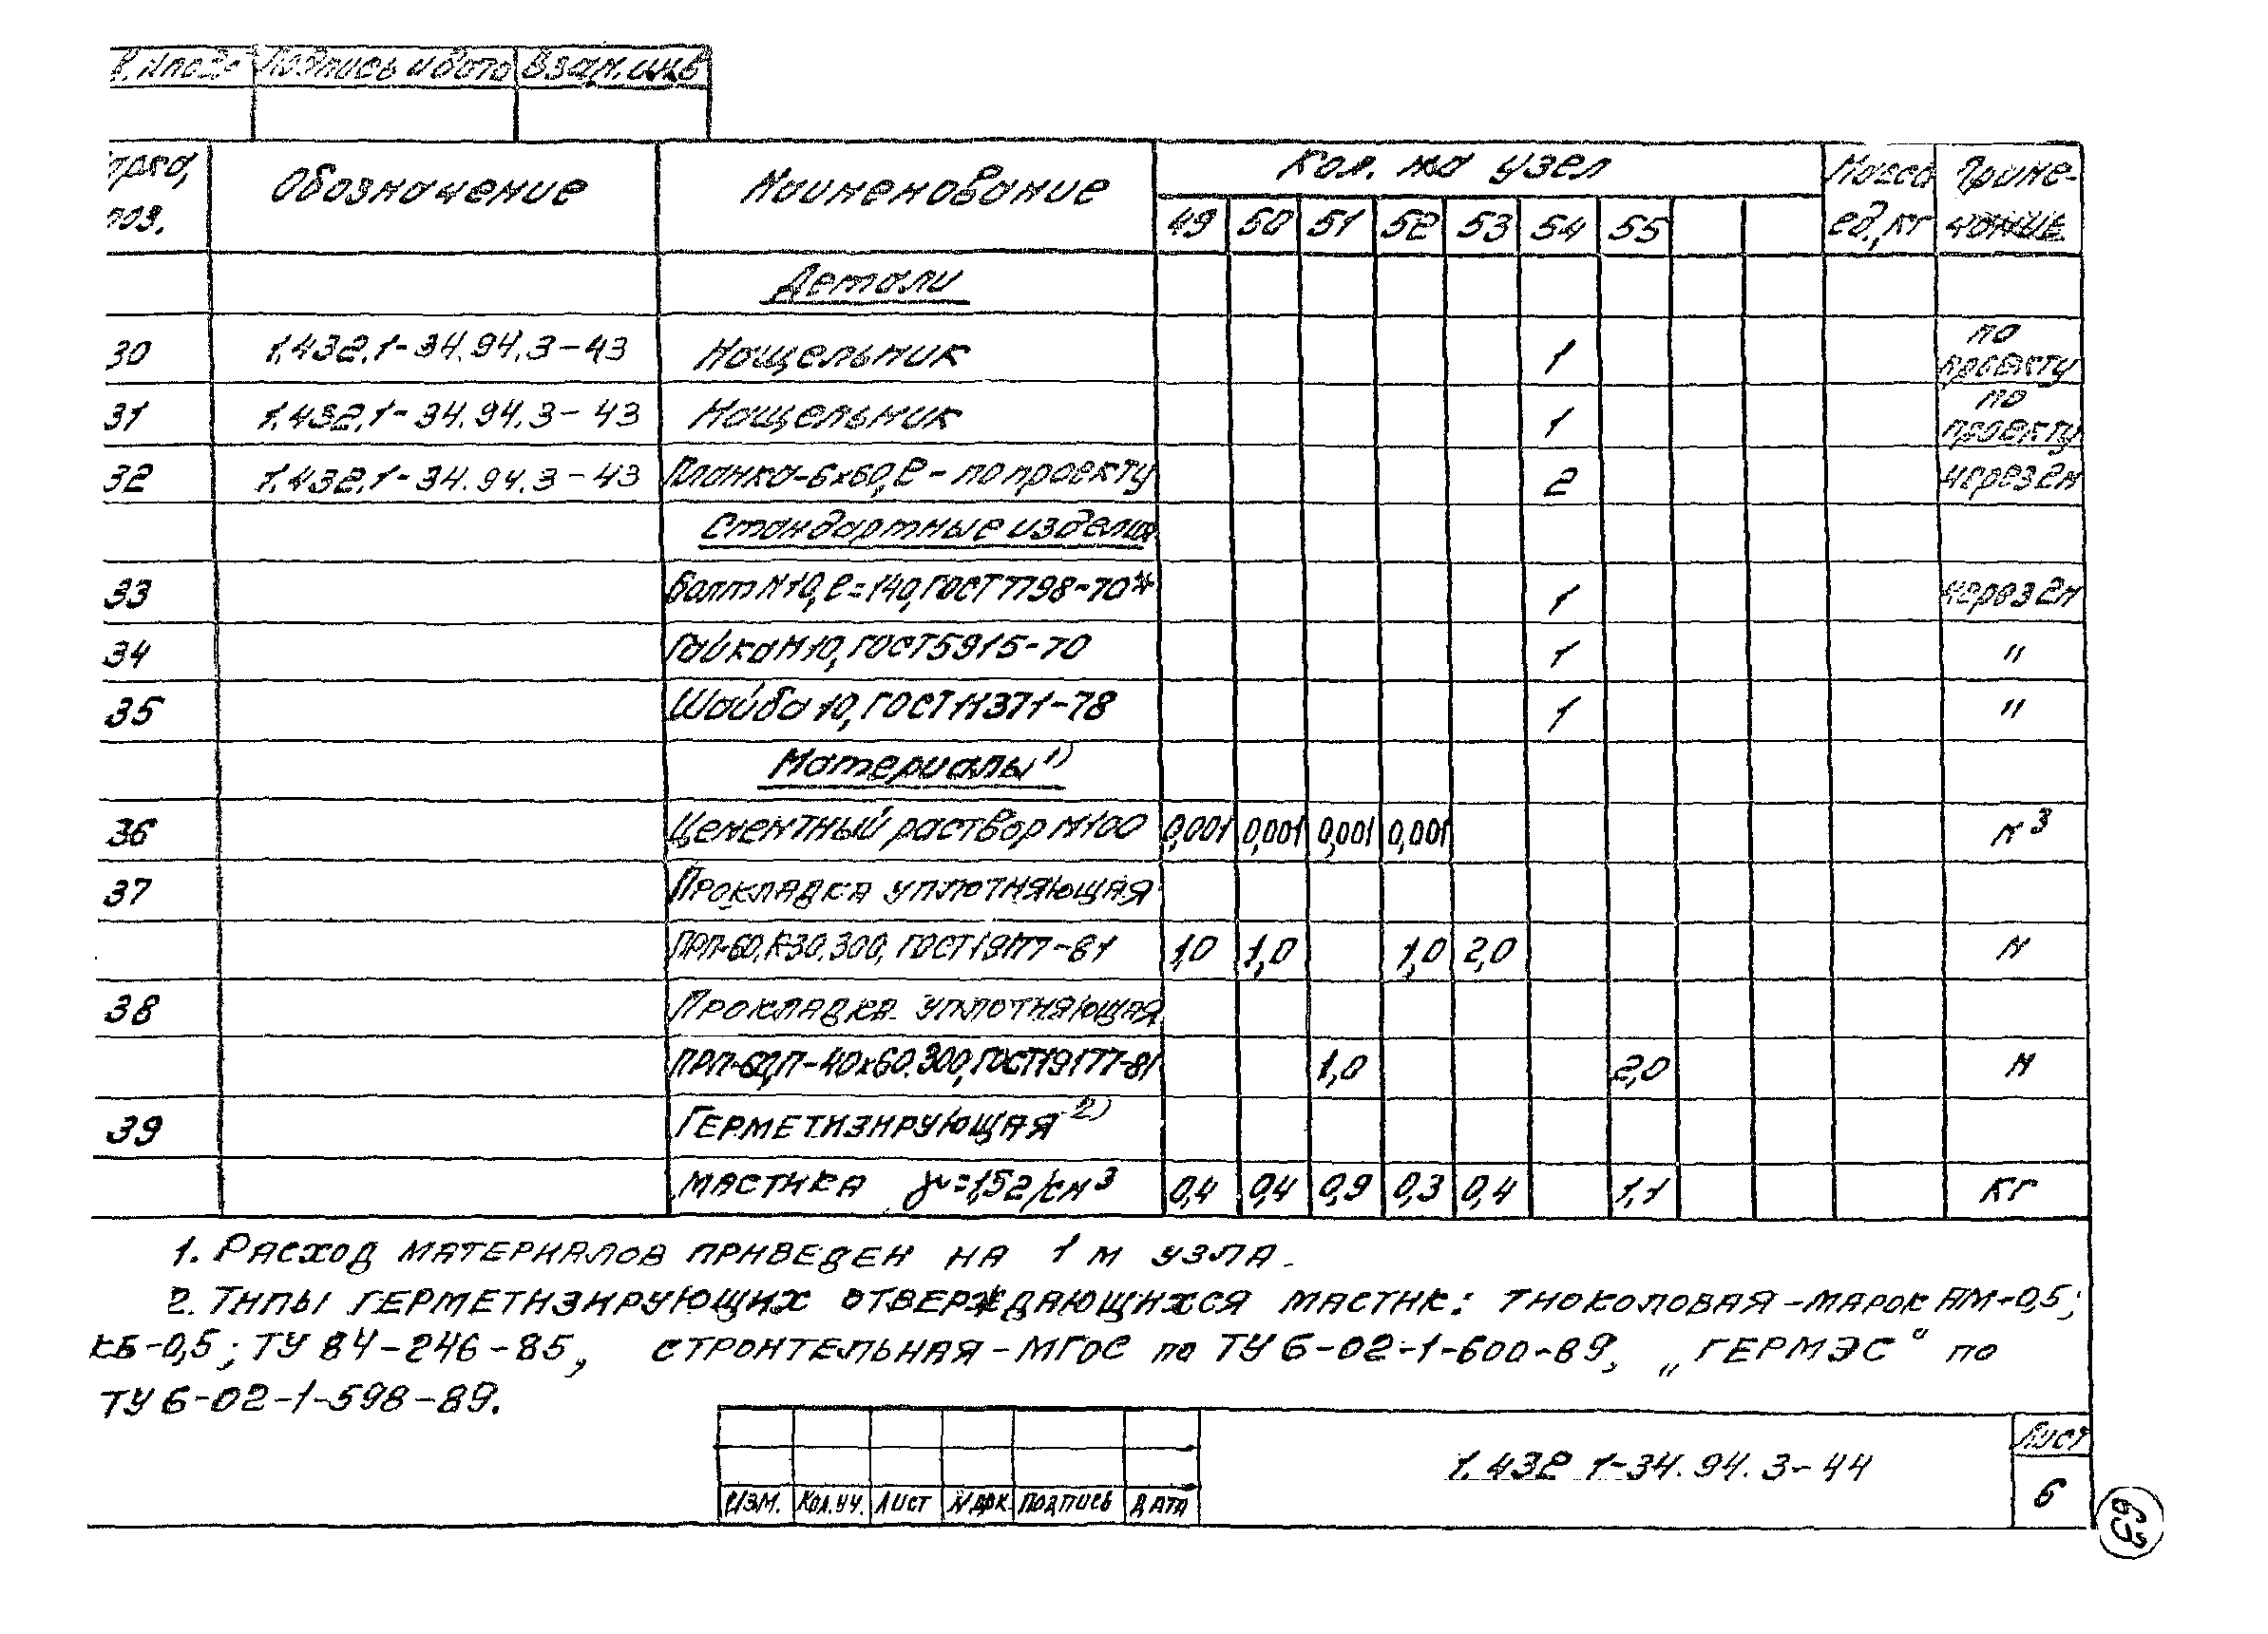 подл Подпись и дата Взам. инв
Обозначение Наименование Кол. на узел Масса ед., кг Приме-
поз. 49 50 51 52 53 54 55 чание
Детали
30 1.432.1-34.94.3-43 Нащельник 1 по проекту
31 1.432.1-34.94.3-43 Нащельник 1 по проекту
32 1.432.1-34.94.3-43 Планка-6х60, ℓ - по проекту 2 через 2м
Стандартные изделия
33 Болт М10, ℓ=140, ГОСТ 7798-70* 1 через 2м
34 Гайка М10, ГОСТ 5915-70 1 "
35 Шайба 10, ГОСТ 11371-78 1 "
Материалы 1)
36 Цементный раствор М100 0,001 0,001 0,001 0,001 м3
37 Прокладка уплотняющая
ПРП-60.К-30.300, ГОСТ 19177-81 1,0 1,0 1,0 2,0 м
38 Прокладка уплотняющая
ПРП-60,П-40х60.300, ГОСТ 19177-81 1,0 2,0 м
39 Герметизирующая 2)
мастика γ=1,5г/см3 0,4 0,4 0,9 0,3 0,4 1,1 кг
1. Расход материалов приведен на 1 м узла.
2. Типы герметизирующих отверждающихся мастик: тиоколовая - марок АМ-0,5;
КБ-0,5; ТУ 84-246-85, строительная - МГОС по ТУ 6-02-1-600-89, „ГЕРМЭС" по
ТУ 6-02-1-598-89.
Изм. Кол.уч. Лист № док. Подпись Дата
1.432 1-34.94.3-44
Лист
6